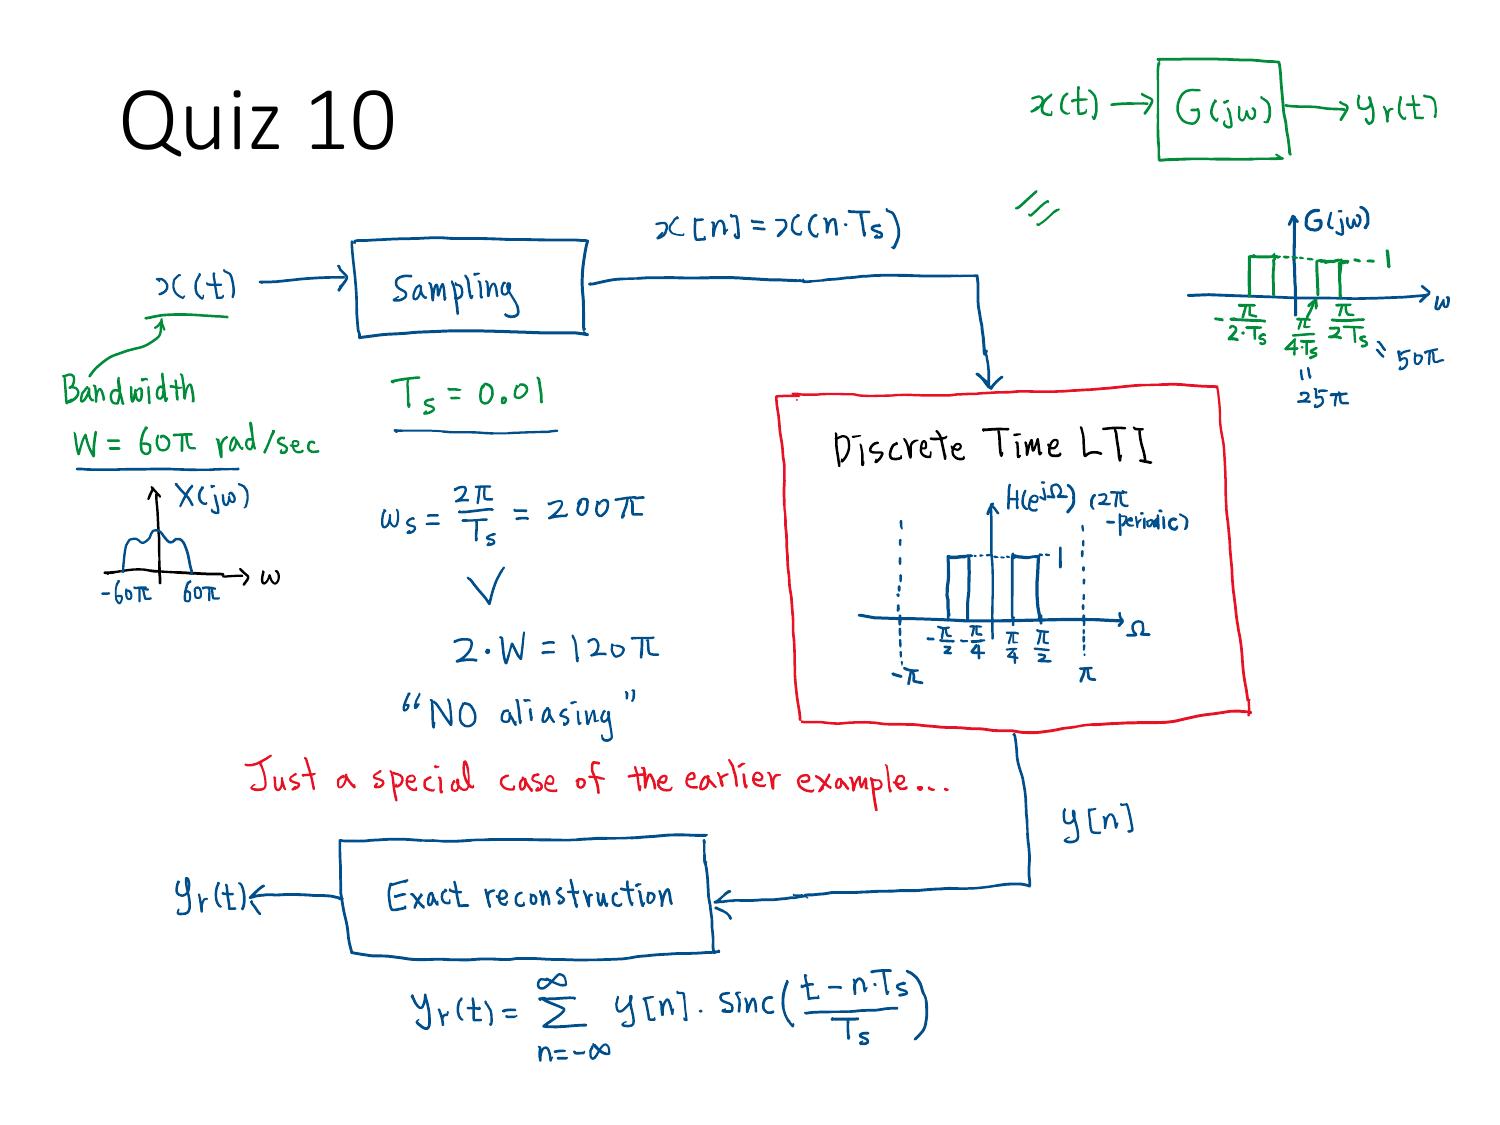 Quiz 10
x(t) → G(jω) → yr(t)
x[n] = x(n·Ts)
G(jω)
1
ω
-π/2·Ts π/4·Ts π/2Ts
= 50π
= 25π
x(t)
Sampling
Bandwidth
W = 60π rad/sec
X(jω)
ω
-60π 60π
Ts = 0.01
ωs = 2π/Ts = 200π
∨
2·W = 120π
“NO aliasing”
Discrete Time LTI
H(e^jΩ) (2π
-periodic)
1
Ω
-π/2 -π/4 π/4 π/2
-π π
Just a special case of the earlier example...
y[n]
yr(t)
Exact reconstruction
yr(t) = ∑ n=-∞ ∞ y[n]· sinc(t - n·Ts / Ts)